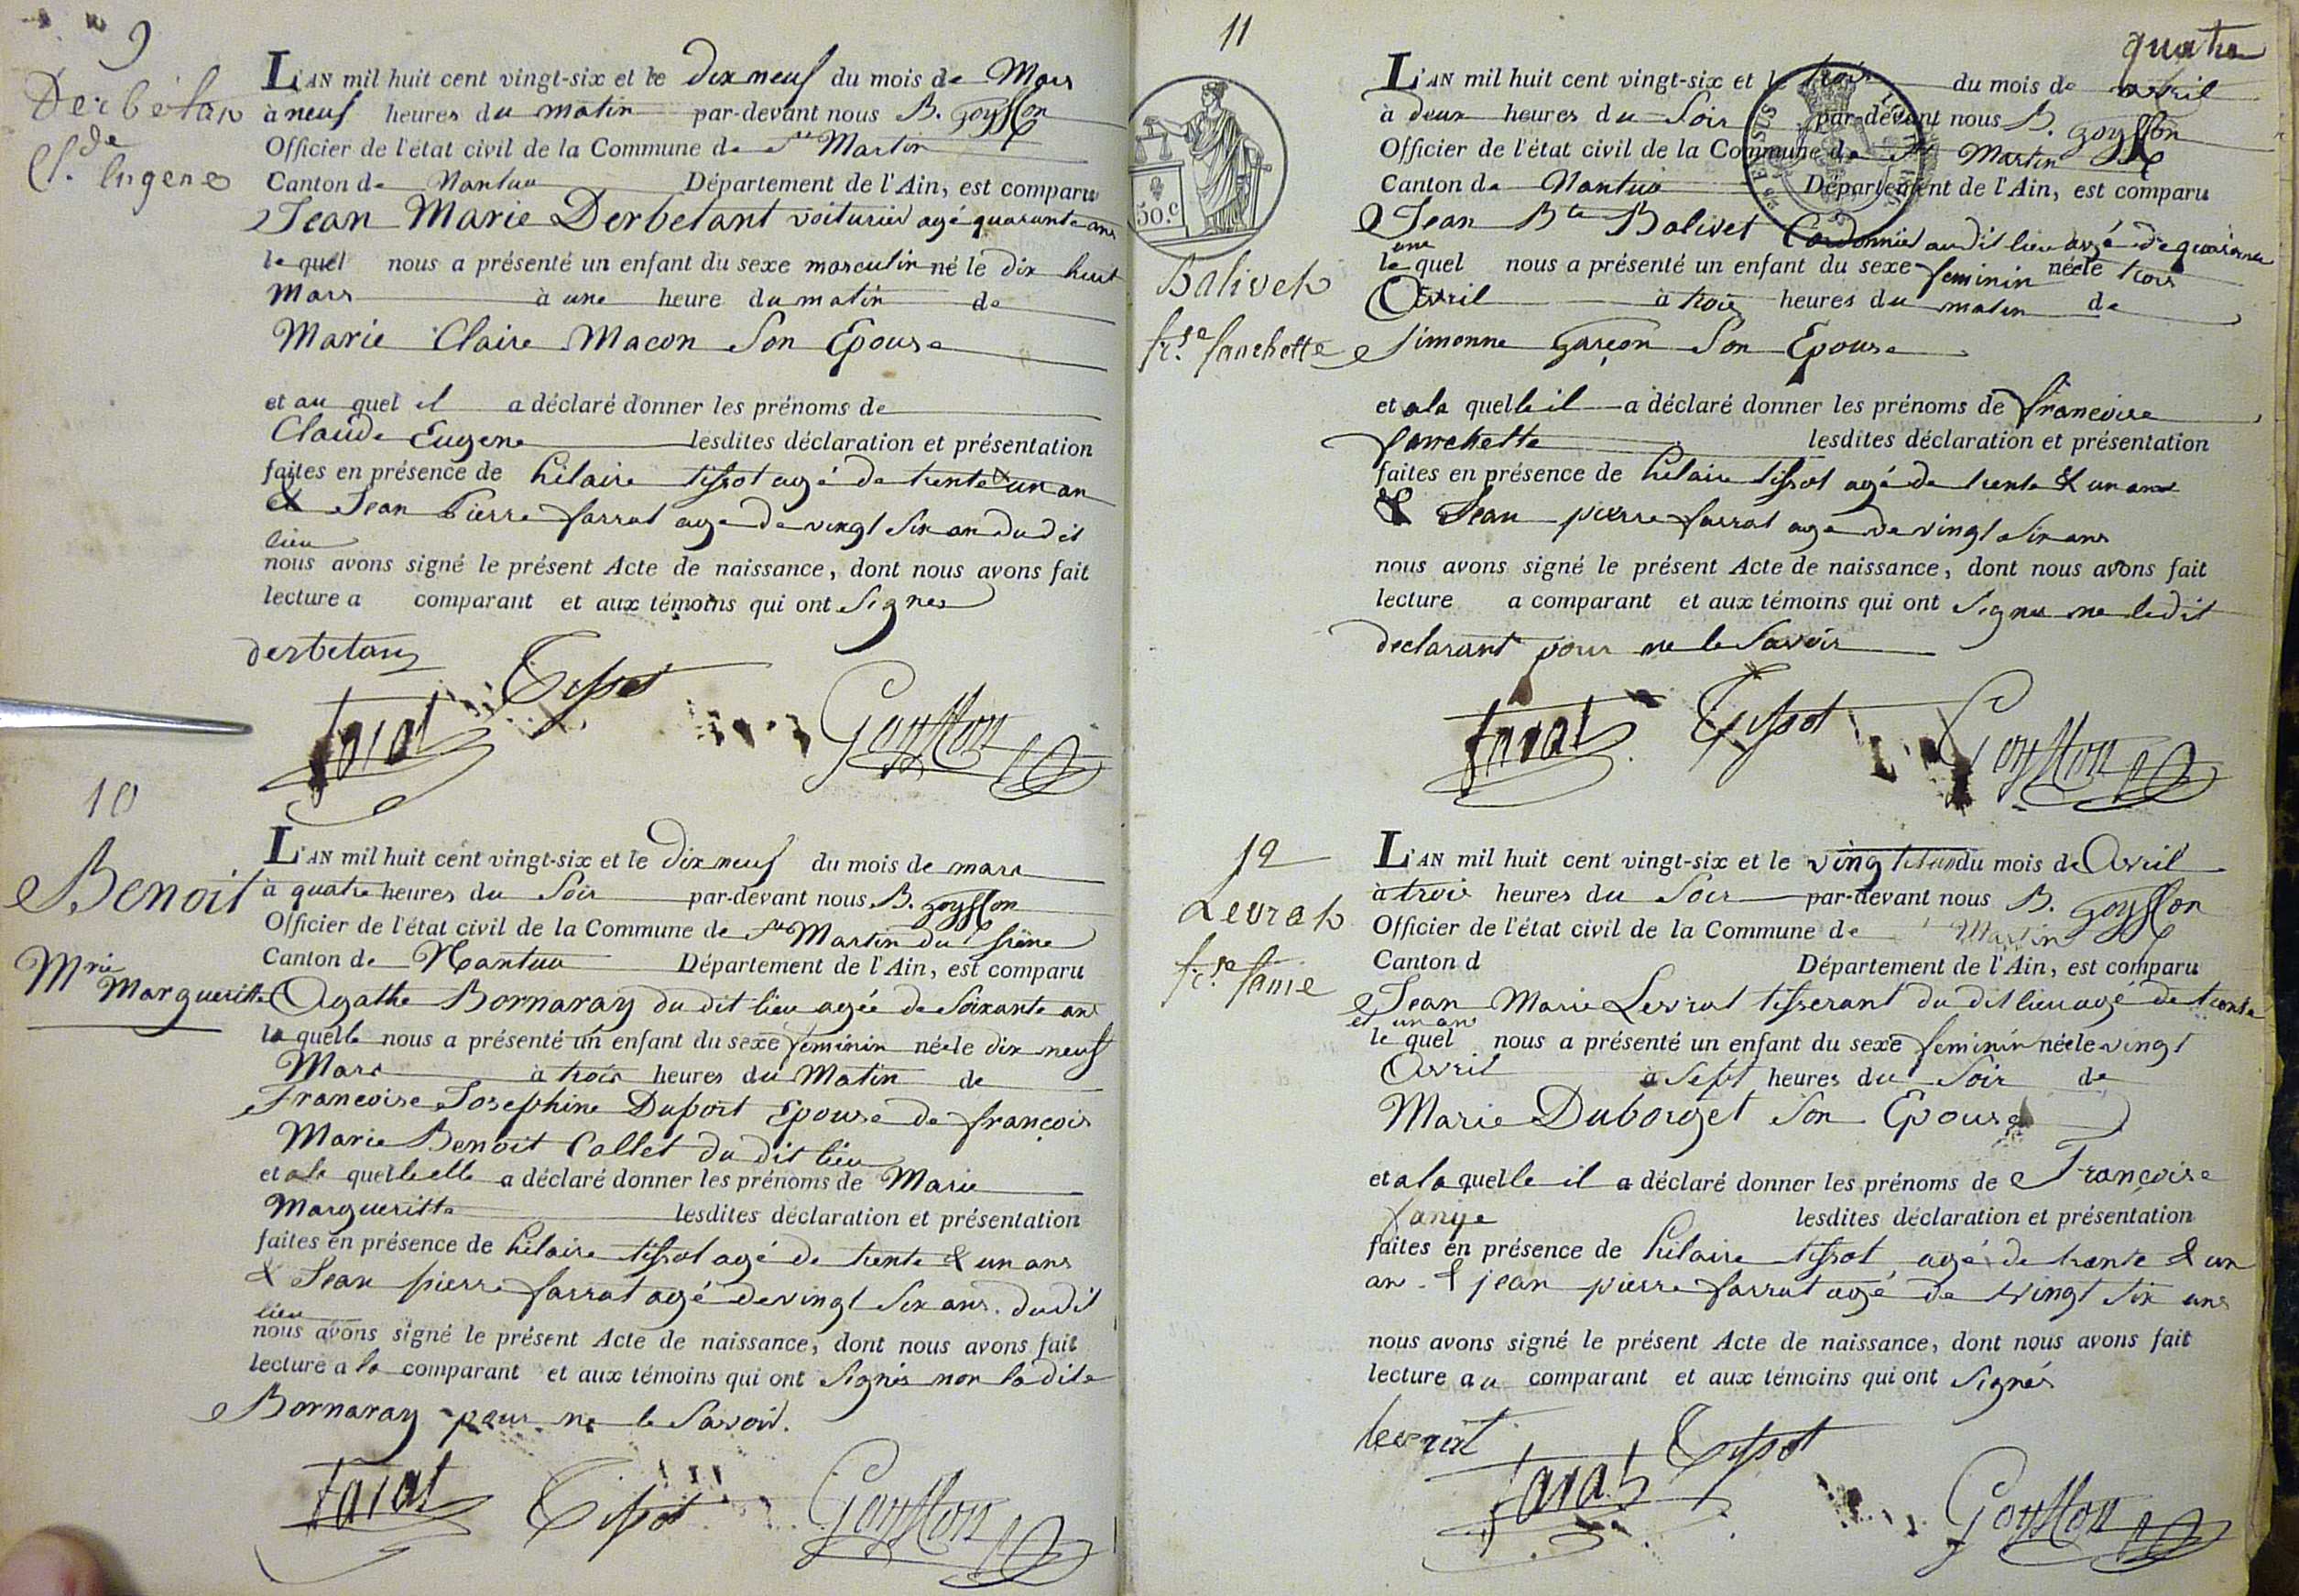 9
Derbétan
C.de Eugene
L'AN mil huit cent vingt-six et le dix neuf du mois de Mars
à neuf heures du matin par-devant nous B. Goyffon
Officier de l'état civil de la Commune de St Martin
Canton de Nantua Département de l'Ain, est comparu
Jean Marie Derbetant voiturier agé quarante ans
le quel nous a présenté un enfant du sexe masculin né le dix huit
Mars à une heure du matin de
Marie Claire Macon Son Epouse
et au quel il a déclaré donner les prénoms de
Claude Eugene lesdites déclaration et présentation
faites en présence de hilaire tissot agé de trente & un an
& Jean Pierre farrat age de vingt Six an du dit
lieu
nous avons signé le présent Acte de naissance, dont nous avons fait
lecture a comparant et aux témoins qui ont Signes
derbetant
Tissot
farat
Goyffon
10
Benoit
Mrie Margueritte
L'AN mil huit cent vingt-six et le dix neuf du mois de mars
à quatre heures du Soir par-devant nous B. Goyffon
Officier de l'état civil de la Commune de St Martin du frêne
Canton de Nantua Département de l'Ain, est comparu
Agathe Bornaray du dit lieu agée de Soixante ans
la quelle nous a présenté un enfant du sexe feminin née le dix neuf
Mars à trois heures du Matin de
Francoise Josephine Duport Epouse de françois
Marie Benoit Collet du dit lieu
et a la quelle elle a déclaré donner les prénoms de Marie
Margueritte lesdites déclaration et présentation
faites en présence de hilaire tissot agé de trente & un ans
& Jean pierre farrat agé de vingt Six ans. du dit
lieu
nous avons signé le présent Acte de naissance, dont nous avons fait
lecture a la comparant et aux témoins qui ont Signés non la dite
Bornaray pour ne le Savoir.
farat
Tissot
Goyffon
quatre
11
50.c
Balivet
fr.se fanchette
L'AN mil huit cent vingt-six et le trois du mois de avril
à deux heures du Soir par-devant nous B. Goyffon
Officier de l'état civil de la Commune de St Martin
Canton de Nantua Département de l'Ain, est comparu
Jean Bte Balivet Cordonnier au dit lieu agé de quarante
un
le quel nous a présenté un enfant du sexe feminin née le trois
Avril à trois heures du matin de
Simonne Garçon Son Epouse
et a la quelle il a déclaré donner les prénoms de francoise
fanchette lesdites déclaration et présentation
faites en présence de hilaire tissot agé de trente & un ans
& Jean pierre farrat age de vingt Six ans
nous avons signé le présent Acte de naissance, dont nous avons fait
lecture a comparant et aux témoins qui ont Signer ne ledit
declarant pour ne le Savoir
farat
Tissot
Goyffon
12
Levrat
fr.se fanie
L'AN mil huit cent vingt-six et le vingt du mois de Avril
à trois heures du Soir par-devant nous B. Goyffon
Officier de l'état civil de la Commune de Martin
Canton d Département de l'Ain, est comparu
Jean Marie Levrat tisserant du dit lieu agé de trente
et un an
le quel nous a présenté un enfant du sexe feminin née le vingt
Avril à Sept heures du Soir de
Marie Dubouget Son Epouse
et a la quelle il a déclaré donner les prénoms de Françoise
fanye lesdites déclaration et présentation
faites en présence de hilaire tissot agé de trente & un
an & jean pierre farrat agé de vingt Six ans
nous avons signé le présent Acte de naissance, dont nous avons fait
lecture au comparant et aux témoins qui ont Signés
levrat
farat
Tissot
Goyffon